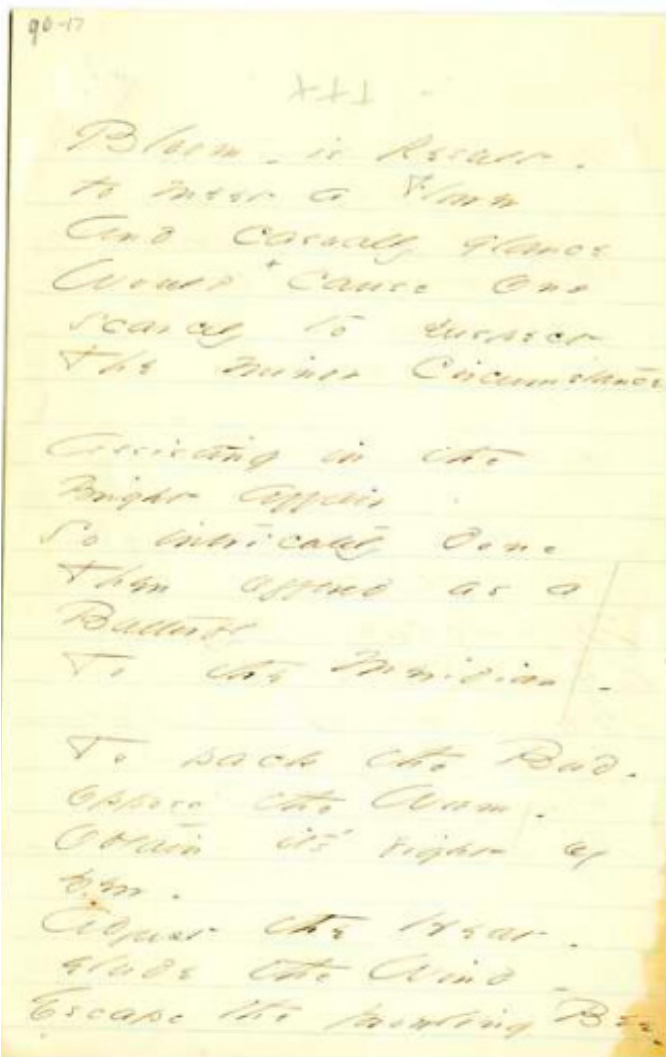 90-17
Bloom - is Result -
to meet a Flower
And casually glance
Would + cause one
scarcely to suspect
The minor Circumstance
Assisting in the
Bright Affair
So intricately done
Then offered as a
Butterfly
To the Meridian -
To pack the Bud -
oppose the Worm -
Obtain its right of
Dew -
Adjust the Heat -
elude the Wind -
Escape the prowling Bee -